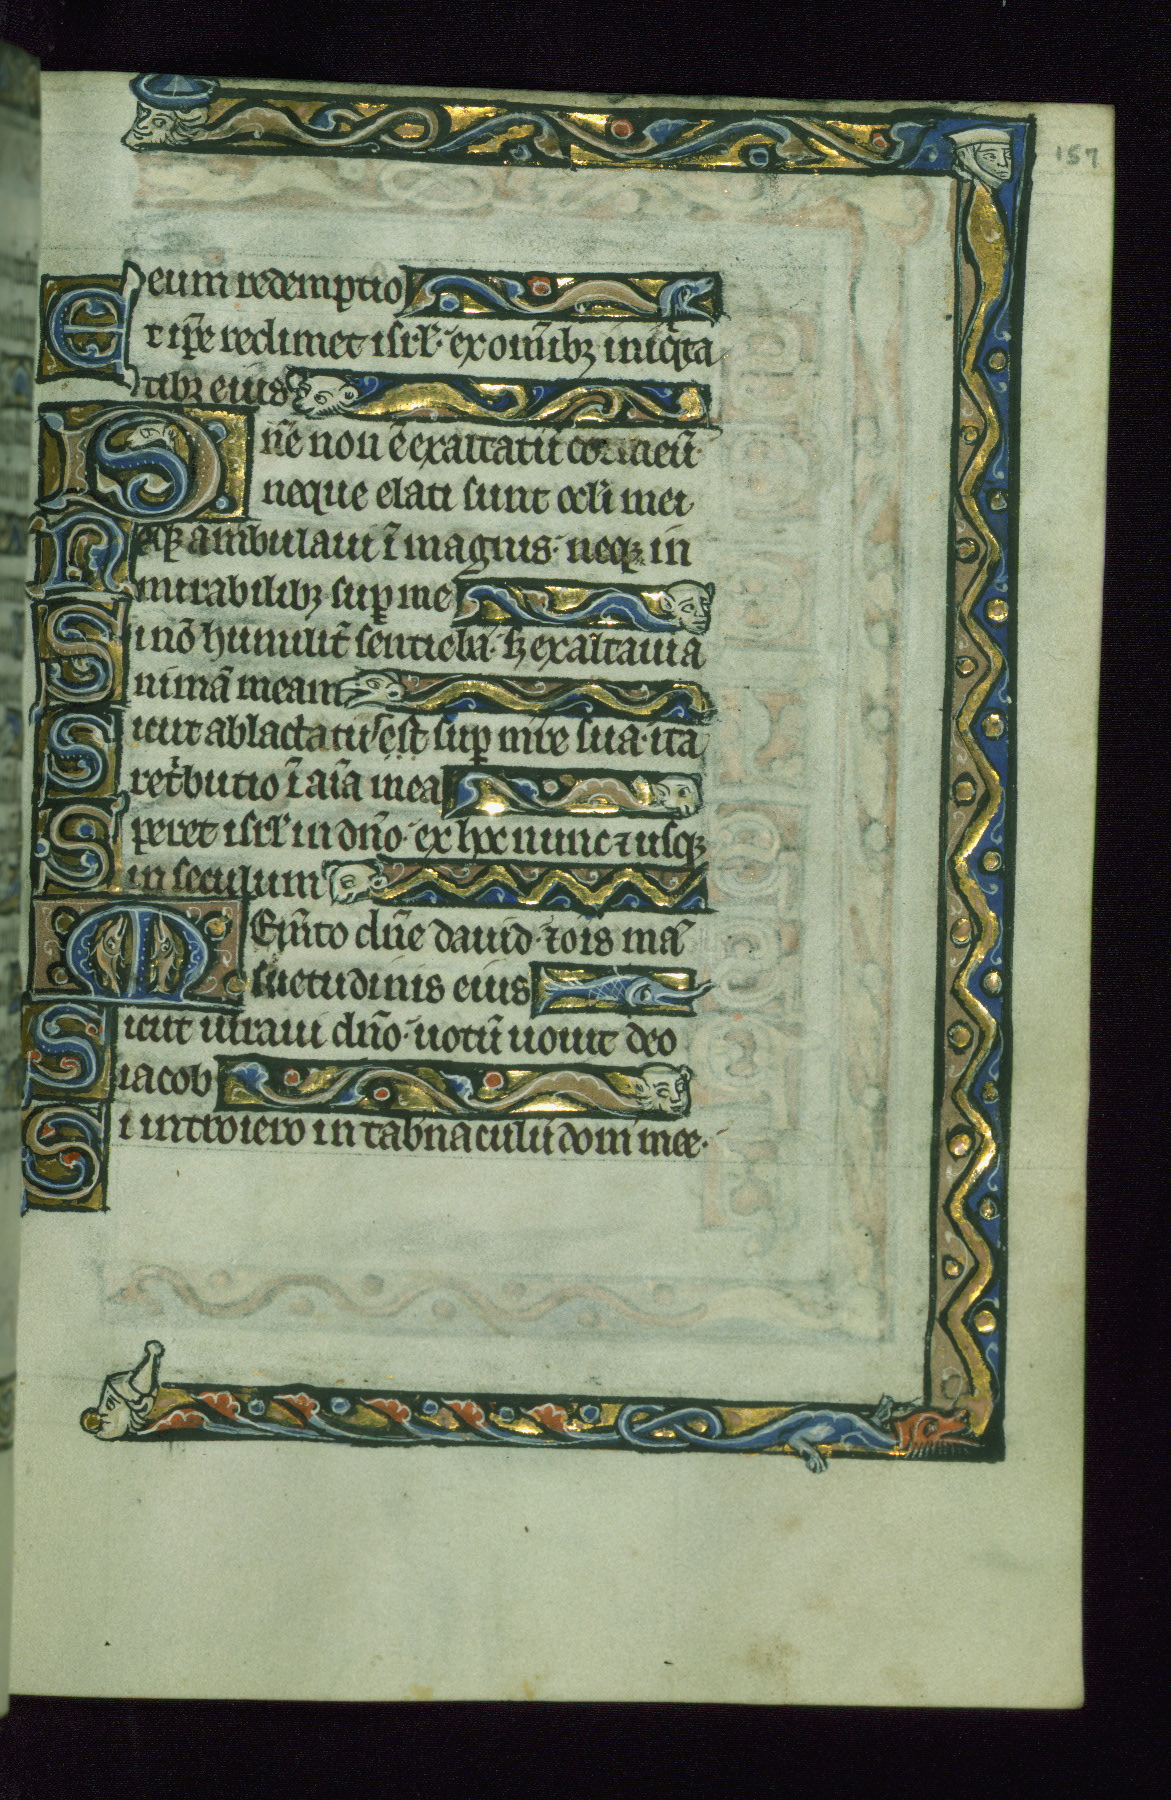 157
eum redemptio
Et ip̄e redimet isrl̄· ex om̄ibꝫ iniq̇ta
tibꝫ eius
Dn̄e non ē exaltatū cor meū·
neque elati sunt ocl̄i mei
Neqꝫ ambulaui ī magnis· neqꝫ in
mirabilibꝫ sup me
Si nō humilit̄ sentiebā· sꝫ exaltaui a
nimā meam
Sicut ablactatus est sup mr̄e sua· ita
ret̓butio ī aīa mea
Speret isrl̄ in dn̄o· ex hoc nunc ⁊ usqꝫ
in seculum
Mem̄to dn̄e dauid· ⁊ oīs mā
suetudinis eius
Sicut iuraui dn̄o· uotū uouit deo
iacob
Si introiero in tabnaculū dom mee·